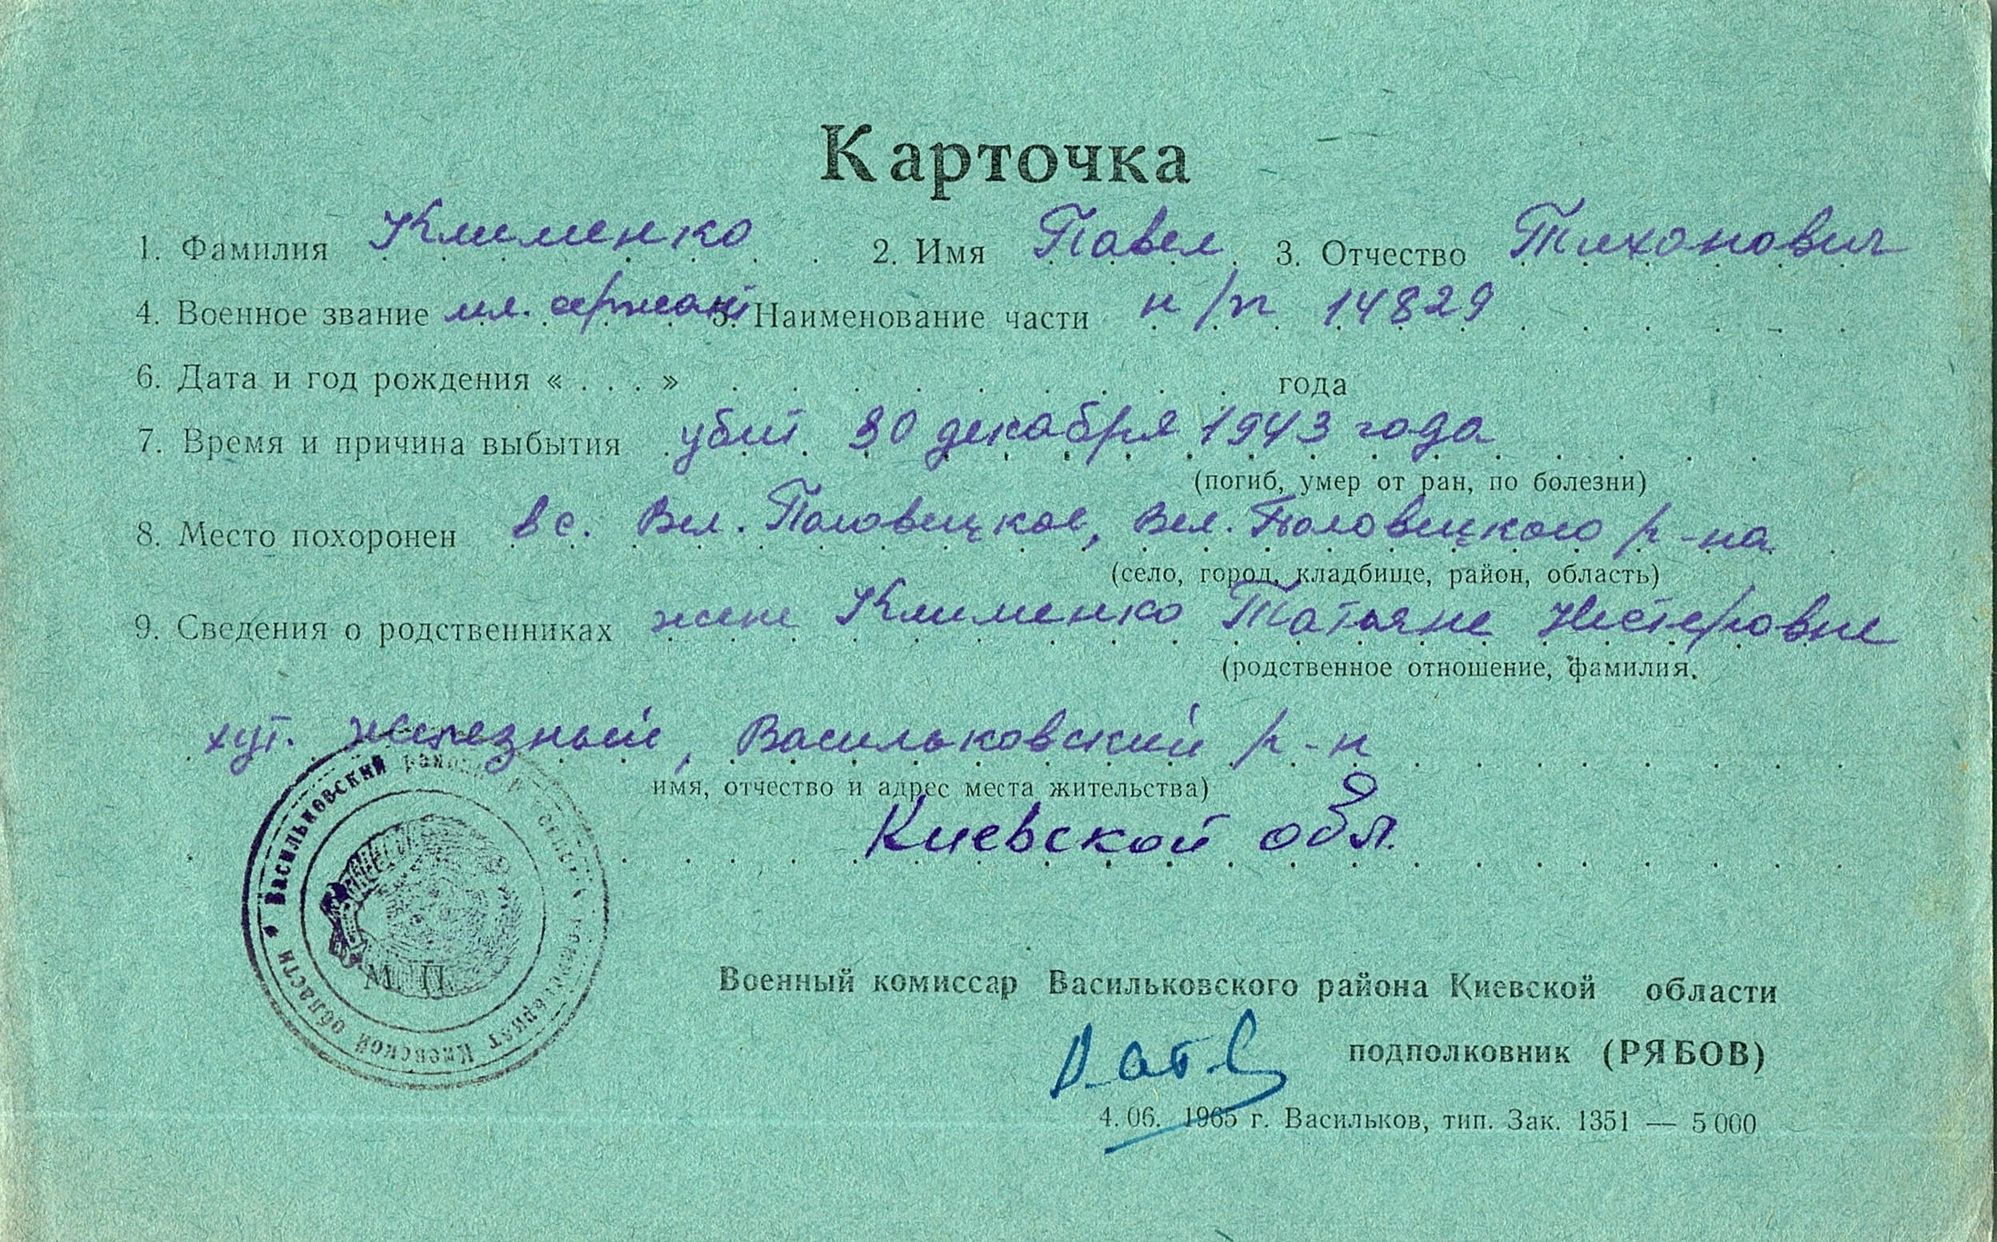 Карточка
1. Фамилия Клименко 2. Имя Павел 3. Отчество Тихонович
4. Военное звание мл. сержант 5. Наименование части п/п 14829
6. Дата и год рождения « . . . » года
7. Время и причина выбытия убит 30 декабря 1943 года
(погиб, умер от ран, по болезни)
8. Место похоронен в с. Вел. Половецкое, Вел. Половецкого р-на
(село, город, кладбище, район, область)
9. Сведения о родственниках жене Клименко Татьяне Нестеровне
(родственное отношение, фамилия,
хут. Железный, Васильковский р-н
имя, отчество и адрес места жительства)
Киевской обл.
Васильковский районный военный комиссариат Киевской области
М. П.
Военный комиссар Васильковского района Киевской области
подполковник (РЯБОВ)
4. 06. 1965 г. Васильков, тип. Зак. 1351 — 5 000